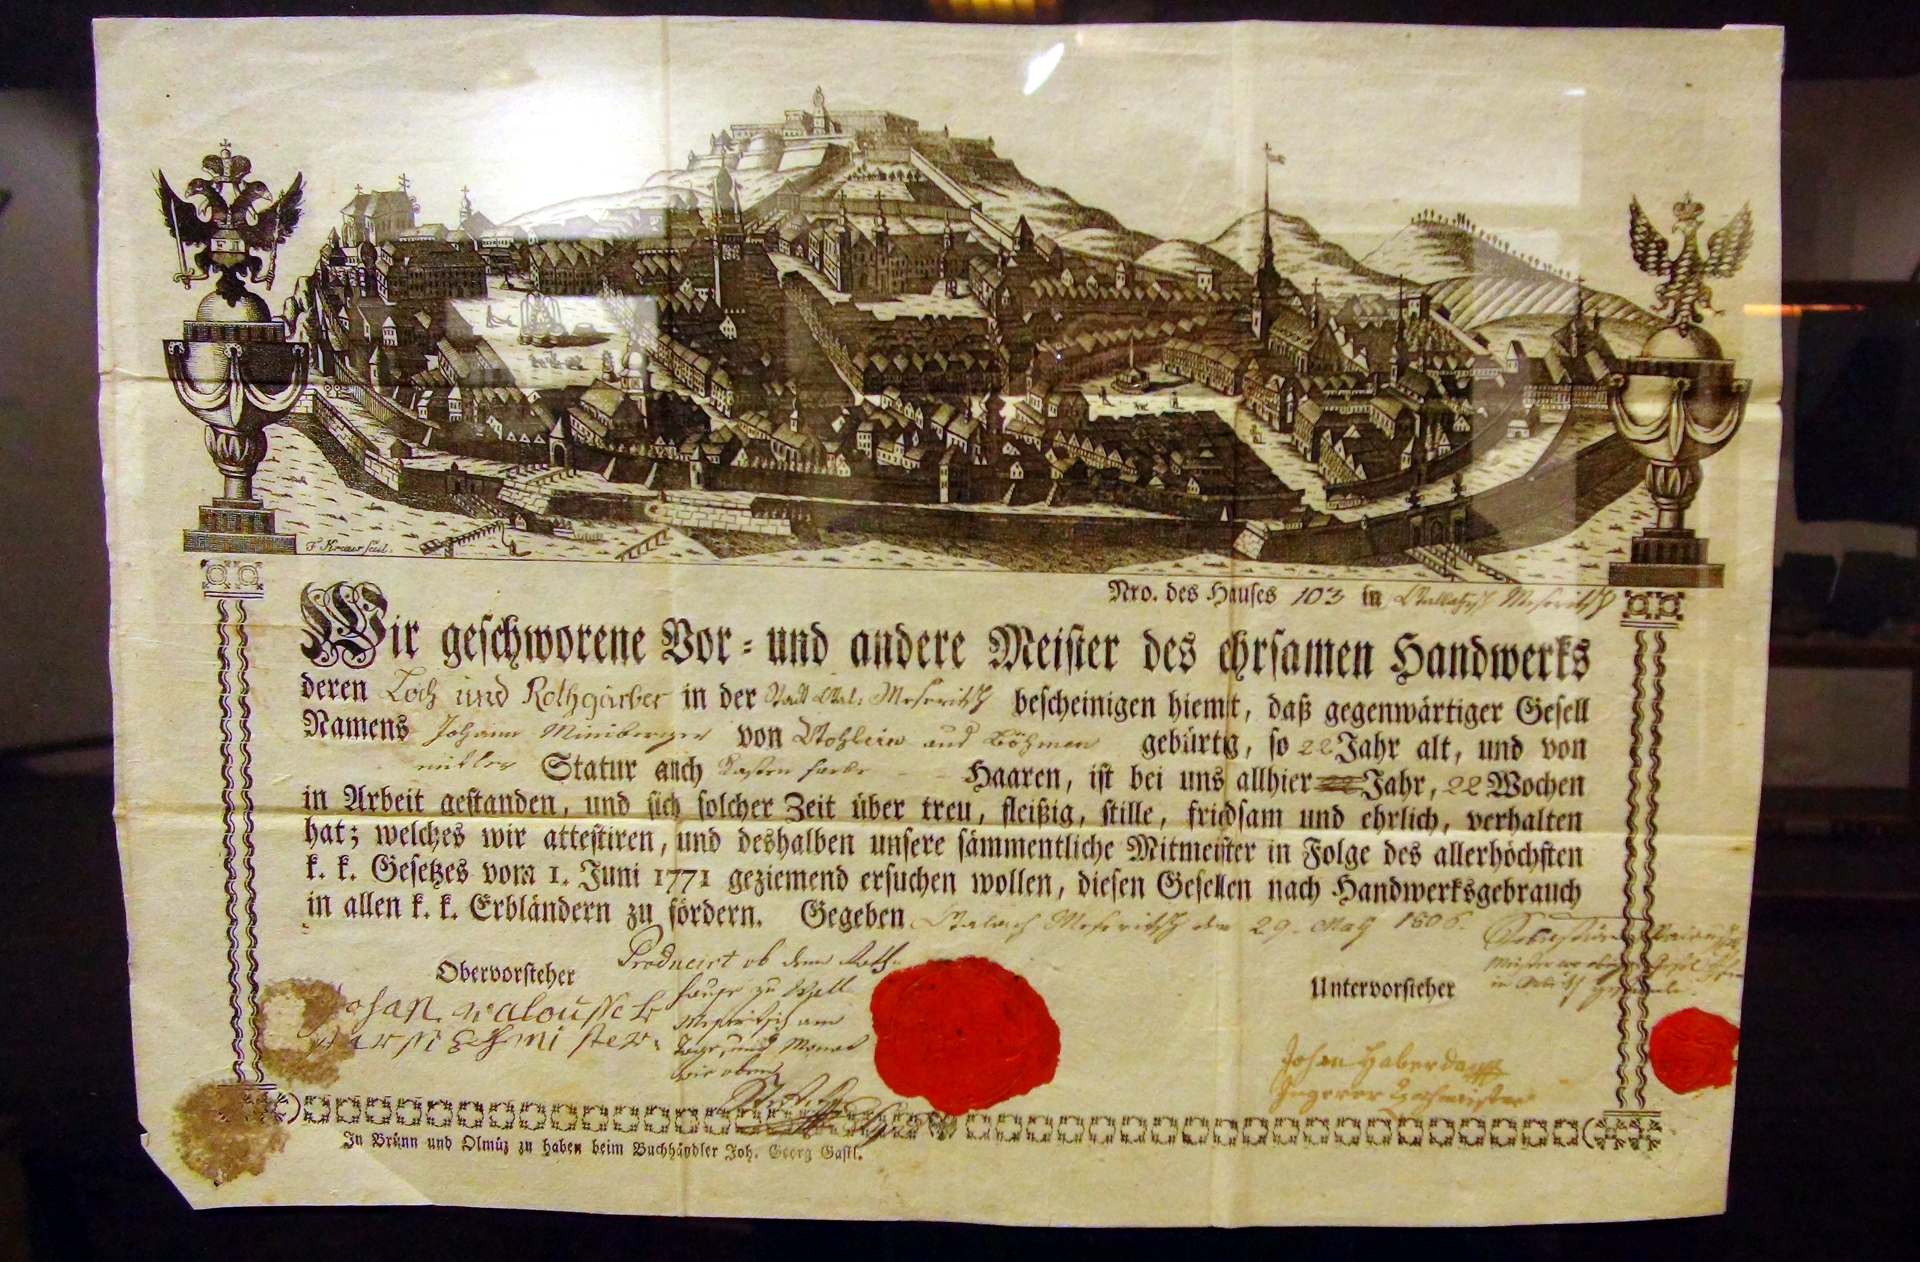 F Kreuz scul.
Nro. des Hauses 103 in Wallachisch Meseritsch
Wir geschworene Vor- und andere Meister des ehrsamen Handwerks
deren Loch und Rothgärber in der Stadt Wal: Meseritsch bescheinigen hiemit, daß gegenwärtiger Gesell
Namens Johann Miniberger von aus Böhmen gebürtig, so 22 Jahr alt, und von
mitler Statur auch Haaren, ist bei uns allhier Jahr, 22 Wochen
in Arbeit gestanden, und sich solcher Zeit über treu, fleißig, stille, friedsam und ehrlich, verhalten
hat; welches wir attestiren, und deshalben unsere sämmentliche Mitmeister in Folge des allerhöchsten
k. k. Gesetzes vom 1. Juni 1771 geziemend ersuchen wollen, diesen Gesellen nach Handwerksgebrauch
in allen k. k. Erbländern zu fördern. Gegeben Meseritsch den 29. May 1806.
Obervorsteher
Johan
Producirt ob dem Rath-
hause zu Wall.
Meseritsch am
Tage, und Monat
wie oben
Untervorsteher
Johan Haberda
In Brünn und Olmüz zu haben beim Buchhändler Joh. Georg Gastl.